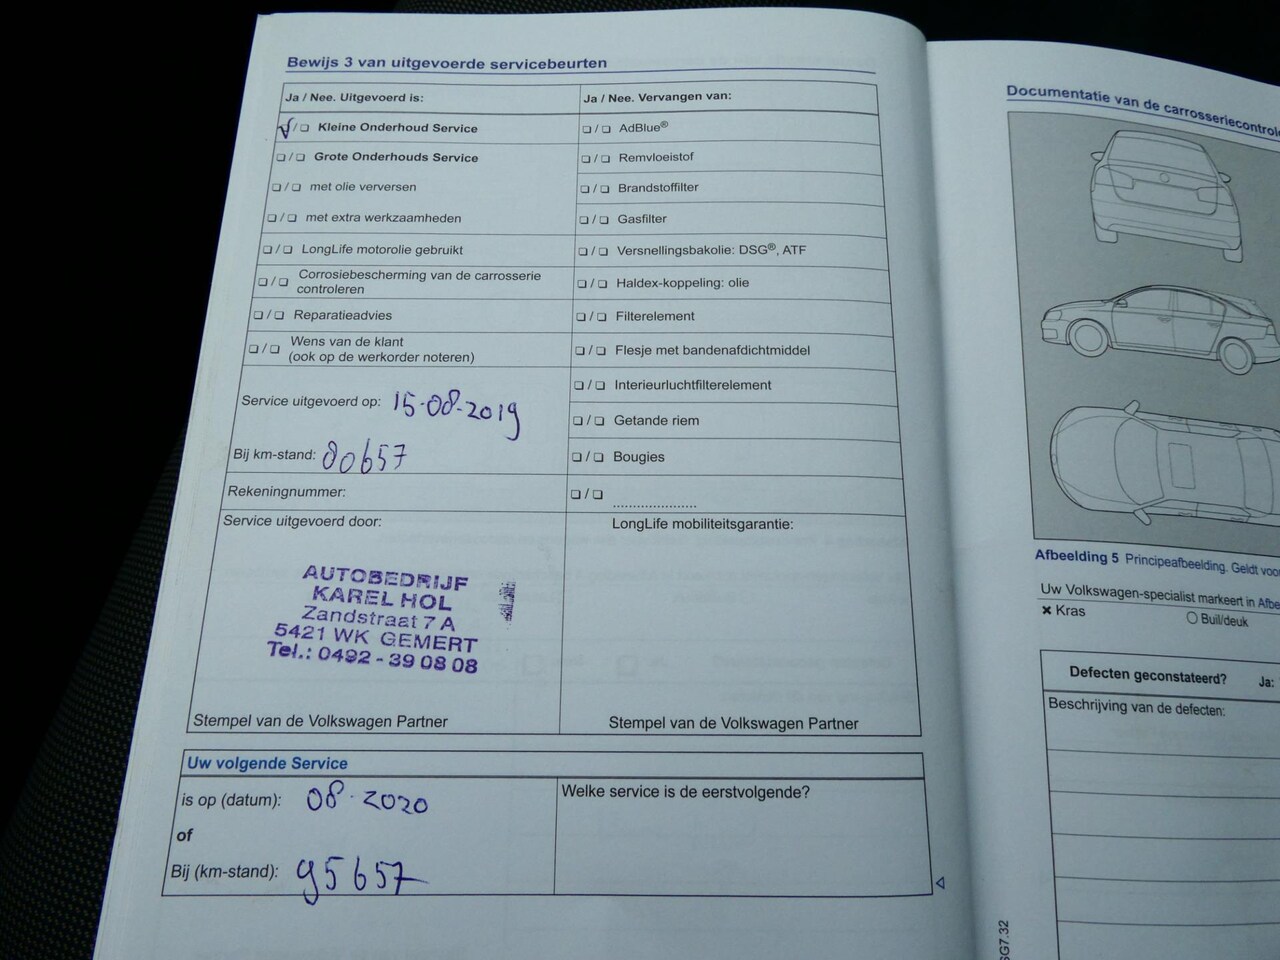 Bewijs 3 van uitgevoerde servicebeurten
Ja / Nee. Uitgevoerd is:
Kleine Onderhoud Service
Grote Onderhouds Service
met olie verversen
met extra werkzaamheden
LongLife motorolie gebruikt
Corrosiebescherming van de carrosserie
controleren
Reparatieadvies
Wens van de klant
(ook op de werkorder noteren)
Service uitgevoerd op: 15-08-2019
Bij km-stand: 80657
Rekeningnummer:
Service uitgevoerd door:
AUTOBEDRIJF
KAREL HOL
Zandstraat 7 A
5421 WK GEMERT
Tel.: 0492 - 39 08 08
Stempel van de Volkswagen Partner
Ja / Nee. Vervangen van:
AdBlue®
Remvloeistof
Brandstoffilter
Gasfilter
Versnellingsbakolie: DSG®, ATF
Haldex-koppeling: olie
Filterelement
Flesje met bandenafdichtmiddel
Interieurluchtfilterelement
Getande riem
Bougies
LongLife mobiliteitsgarantie:
Stempel van de Volkswagen Partner
Uw volgende Service
is op (datum): 08-2020
of
Bij (km-stand): 95657
Welke service is de eerstvolgende?
Documentatie van de carrosseriecontrole
Afbeelding 5 Principeafbeelding. Geldt voor
Uw Volkswagen-specialist markeert in Afbe
× Kras
Buil/deuk
Defecten geconstateerd? Ja:
Beschrijving van de defecten:
SG7.32